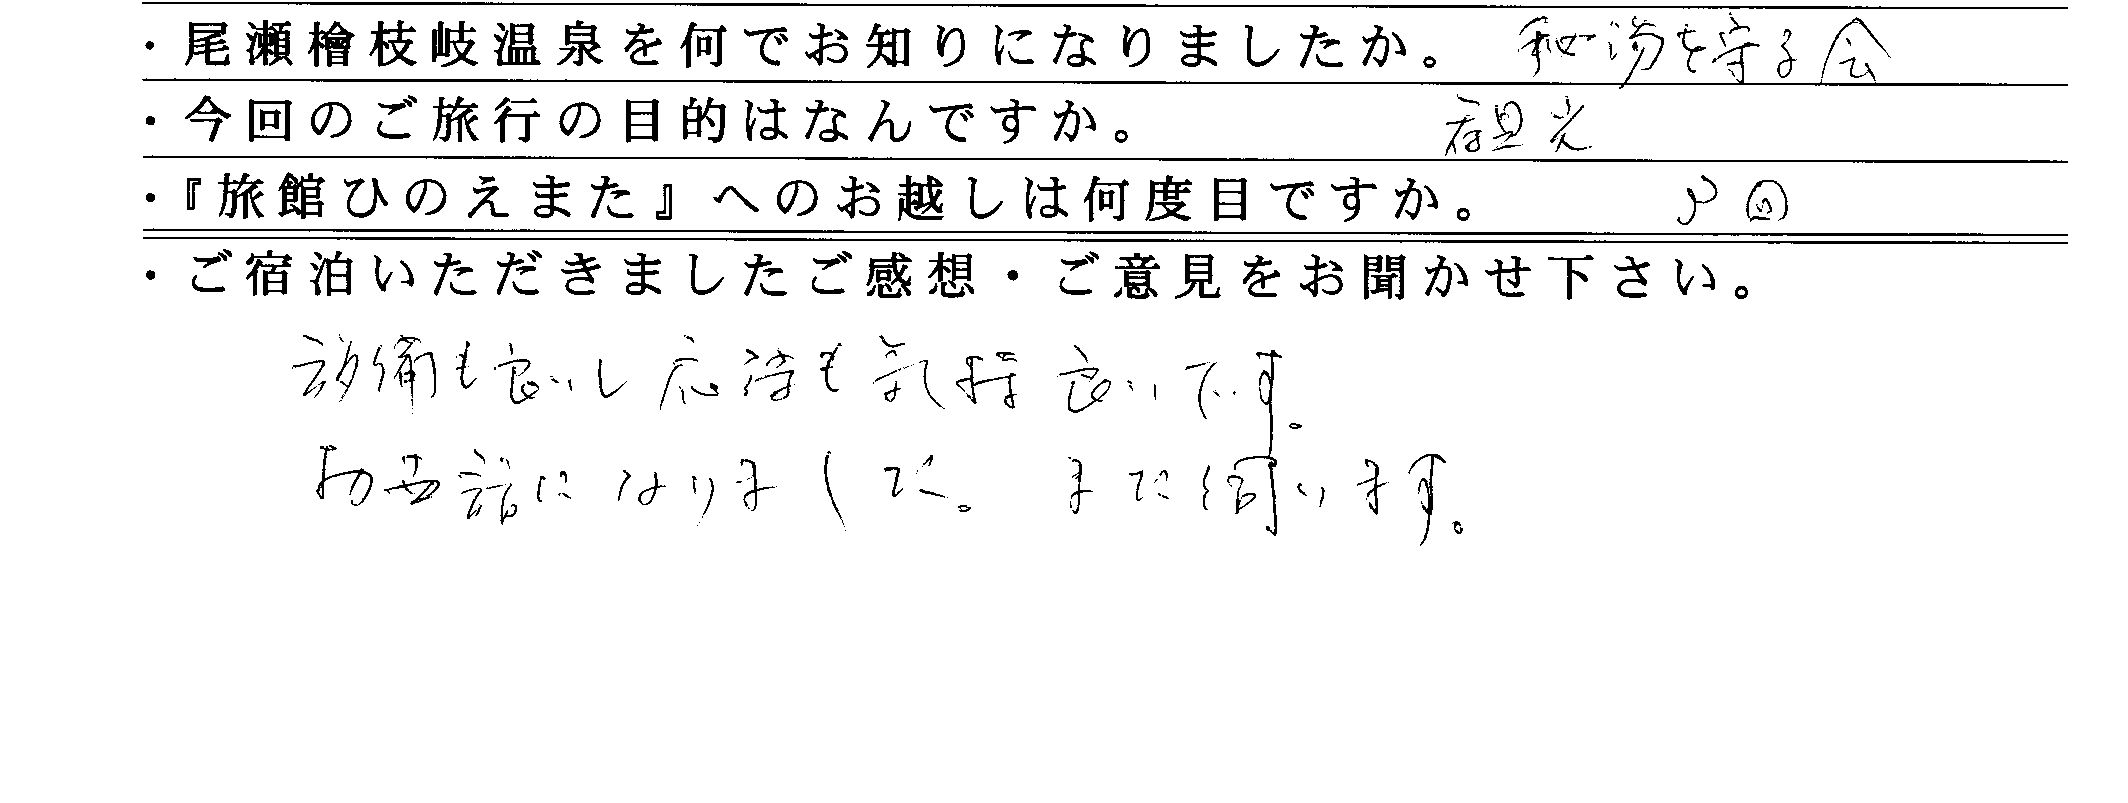 ・尾瀬檜枝岐温泉を何でお知りになりましたか。 秘湯を守る会
・今回のご旅行の目的はなんですか。 観光
・『旅館ひのえまた』へのお越しは何度目ですか。 回
・ご宿泊いただきましたご感想・ご意見をお聞かせ下さい。
設備も良いし応待も気持良いです。
お世話になりました。また伺います。